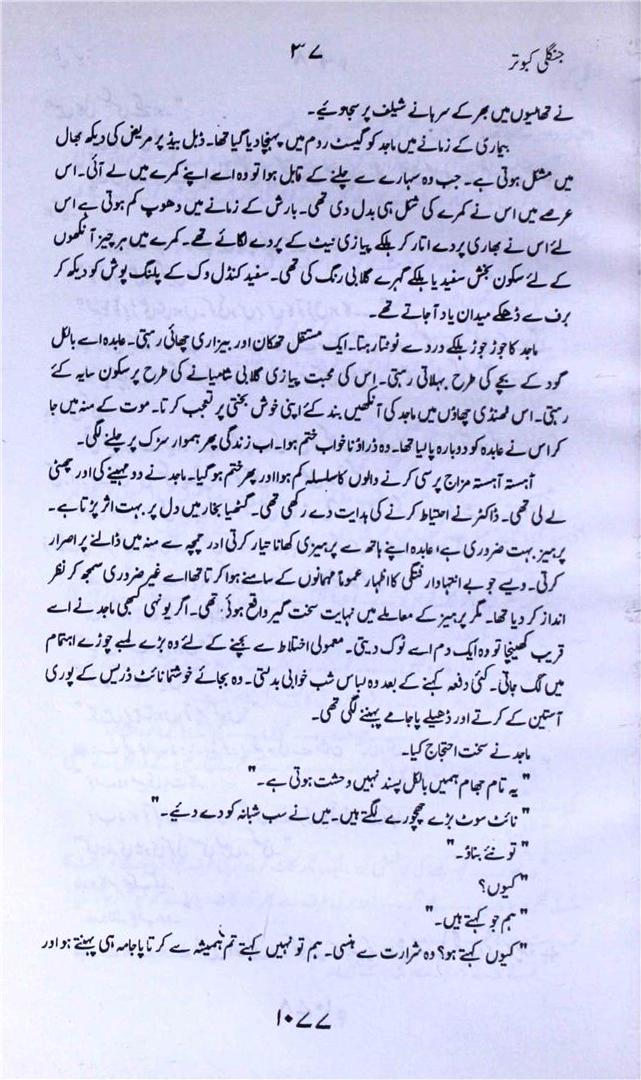 جنگلی کبوتر
۳۷
نے تھالیوں میں بھر کے سرہانے شیلف پر سجا دیئے۔
بیماری کے زمانے میں ماجد کو گیسٹ روم میں پہنچا دیا گیا تھا۔ ڈبل بیڈ پر مریض کی دیکھ بھال
میں مشکل ہوتی ہے۔ جب وہ سہارے سے چلنے کے قابل ہوا تو وہ اسے اپنے کمرے میں لے آئی۔ اس
عرصے میں اس نے کمرے کی شکل ہی بدل دی تھی۔ بارش کے زمانے میں دھوپ کم ہوتی ہے اس
لئے اس نے بھاری پردے اتار کر ہلکے پیازی نیٹ کے پردے لگائے تھے۔ کمرے میں ہر چیز آنکھوں
کے لئے سکون بخش سفید یا ہلکے گہرے گلابی رنگ کی تھی۔ سفید کنڈل وک کے پلنگ پوش کو دیکھ کر
برف سے ڈھکے میدان یاد آ جاتے تھے۔
ماجد کا جوڑ جوڑ ہلکے درد سے ٹوٹتا رہتا۔ ایک مستقل تھکان اور بیزاری چھائی رہتی۔ عابدہ اسے بالکل
گود کے بچے کی طرح بہلاتی رہتی۔ اس کی محبت پیازی گلابی شامیانے کی طرح پرسکون سایہ کئے
رہتی۔ اس ٹھنڈی چھاؤں میں ماجد کی آنکھیں بند کئے اپنی خوش بختی پر تعجب کرتا۔ موت کے منہ میں جا
کر اس نے عابدہ کو دوبارہ پا لیا تھا۔ وہ ڈراؤنا خواب ختم ہوا۔ اب زندگی پھر ہموار سڑک پر چلنے لگی۔
آہستہ آہستہ مزاج پرسی کرنے والوں کا سلسلہ کم ہوا اور پھر ختم ہو گیا۔ ماجد نے دو مہینے کی اور چھٹی
لے لی تھی۔ ڈاکٹر نے احتیاط کرنے کی ہدایت دے رکھی تھی۔ گٹھیا بخار میں دل پر بہت اثر پڑتا ہے۔
پرہیز بہت ضروری ہے، عابدہ اپنے ہاتھ سے پرہیزی کھانا تیار کرتی اور چمچہ سے منہ میں ڈالنے پر اصرار
کرتی۔ ویسے جو بے انتہا وارفتگی کا اظہار عموماً مہمانوں کے سامنے ہوا کرتا تھا اسے غیر ضروری سمجھ کر نظر
انداز کر دیا تھا۔ مگر پرہیز کے معاملے میں نہایت سخت گیر واقع ہوئی تھی۔ اگر یونہی کبھی ماجد نے اسے
قریب کھینچا تو وہ ایک دم اسے ٹوک دیتی۔ معمولی اختلاط سے بچنے کے لئے وہ بڑے لمبے چوڑے اہتمام
میں لگ جاتی۔ کئی دفعہ کہنے کے بعد وہ لباس شب خوابی بدلتی۔ وہ بجائے خوشنما نائٹ ڈریس کے پوری
آستین کے کرتے اور ڈھیلے پاجامے پہننے لگی تھی۔
ماجد نے سخت احتجاج کیا۔
"یہ تام جھام ہمیں بالکل پسند نہیں وحشت ہوتی ہے۔"
"نائٹ سوٹ بڑے چھچورے لگتے ہیں۔ میں نے سب شبانہ کو دے دیئے۔"
"تو نئے بناؤ۔"
"کیوں؟
"ہم جو کہتے ہیں۔"
"کیوں کہتے ہو؟ وہ شرارت سے ہنسی۔ ہم تو نہیں کہتے تم ہمیشہ سے کرتا پاجامہ ہی پہنتے ہو اور
۱۰۷۷